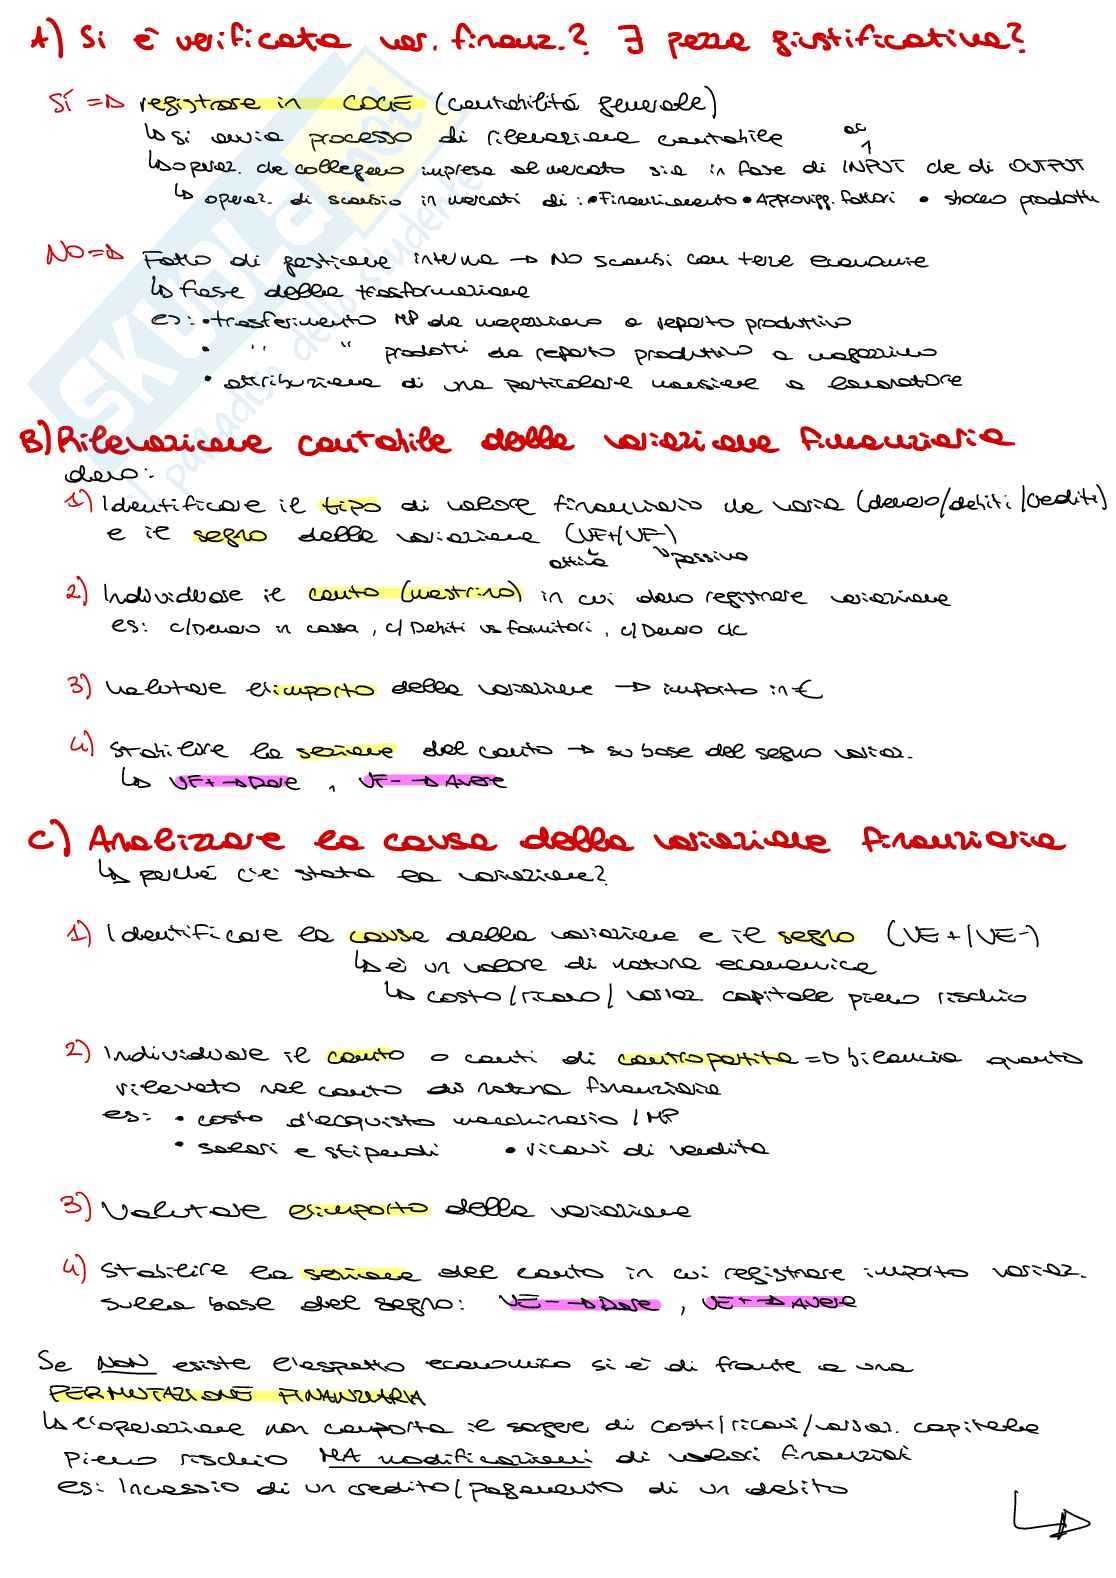 A) Si è verificata var. finanz.? ∃ pezza giustificativa?
SÍ => registrare in COGE (contabilità generale)
↳ si avvia processo di rilevazione contabile
↳ operaz. che collegano impresa al mercato sia in fase di INPUT che di OUTPUT
↳ operaz. di scambio in mercati di: • Finanziamento • Approvvigg. fattori • sbocco prodotti
NO => Fatto di gestione interna → NO scambi con terze economie
↳ fase della trasformazione
es: • trasferimento MP da magazzino a reparto produttivo
• " " prodotti da reparto produttivo a magazzino
• attribuzione di una particolare mansione a lavoratore
B) Rilevazione contabile della variazione finanziaria
devo:
1) Identificare il tipo di valore finanziario che varia (denaro/debiti/crediti)
e il segno della variazione (VF+/VF-)
attiva ↳ passiva
2) Individuare il conto (mastrino) in cui devo registrare variazione
es: c/Denaro in cassa, c/Debiti vs fornitori, c/Denaro c/c
3) Valutare l'importo della variazione → importo in €
4) Stabilire la sezione del conto → su base del segno variaz.
↳ VF+ → Dare, VF- → Avere
C) Analizzare la causa della variazione finanziaria
↳ perché c'è stata la variazione?
1) Identificare la causa della variazione e il segno (VE+/VE-)
↳ è un valore di natura economica
↳ costo/ricavo/variaz. capitale pieno rischio
2) Individuare il conto o conti di contropartita => bilancia quanto
rilevato nel conto di natura finanziaria
es: • costo d'acquisto macchinario / MP
• salari e stipendi • ricavi di vendita
3) Valutare l'importo della variazione
4) Stabilire la sezione del conto in cui registrare importo variaz.
sulla base del segno: VE- → Dare, VE+ → Avere
Se NON esiste l'aspetto economico si è di fronte a una
PERMUTAZIONE FINANZIARIA
↳ l'operazione non comporta il sorgere di costi/ricavi/variaz. capitale
pieno rischio MA modificazioni di valori finanziari
es: Incasso di un credito/pagamento di un debito
SKUOLA.net
il paradiso dello studente